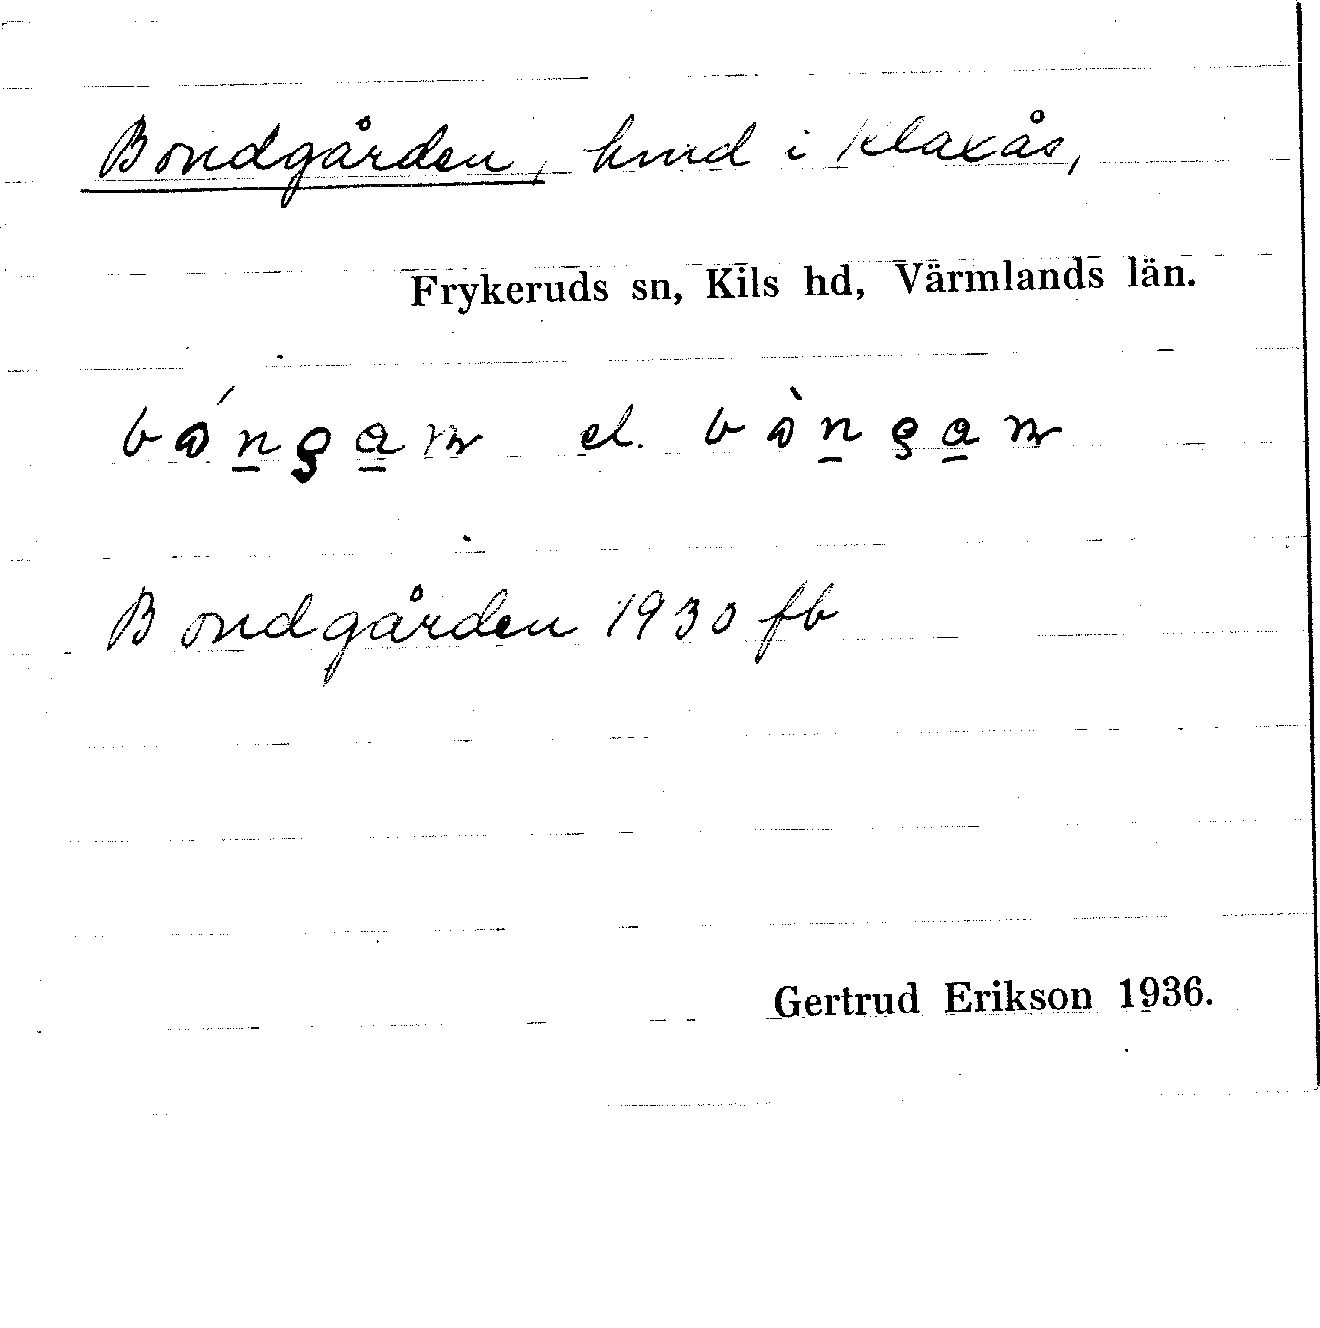 Bondgården, hmd i Klaxås,
Frykeruds sn, Kils hd, Värmlands län.
el.
Bondgården 1930 fb
Gertrud Erikson 1936.